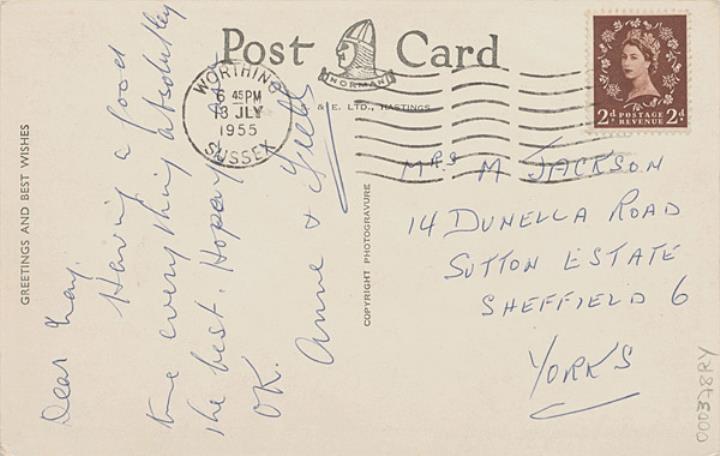 Post Card
NORMAN
& E. LTD., HASTINGS
WORTHING
6 45PM
13 JLY
1955
SUSSEX
2d POSTAGE REVENUE 2d
GREETINGS AND BEST WISHES
COPYRIGHT PHOTOGRAVURE
Dear
Having a good
time everything absolutely
the best. Hopay
OK.
Anne &
MRS M JACKSON
14 DUNELLA ROAD
SUTTON ESTATE
SHEFFIELD 6
YORKS
000378RY